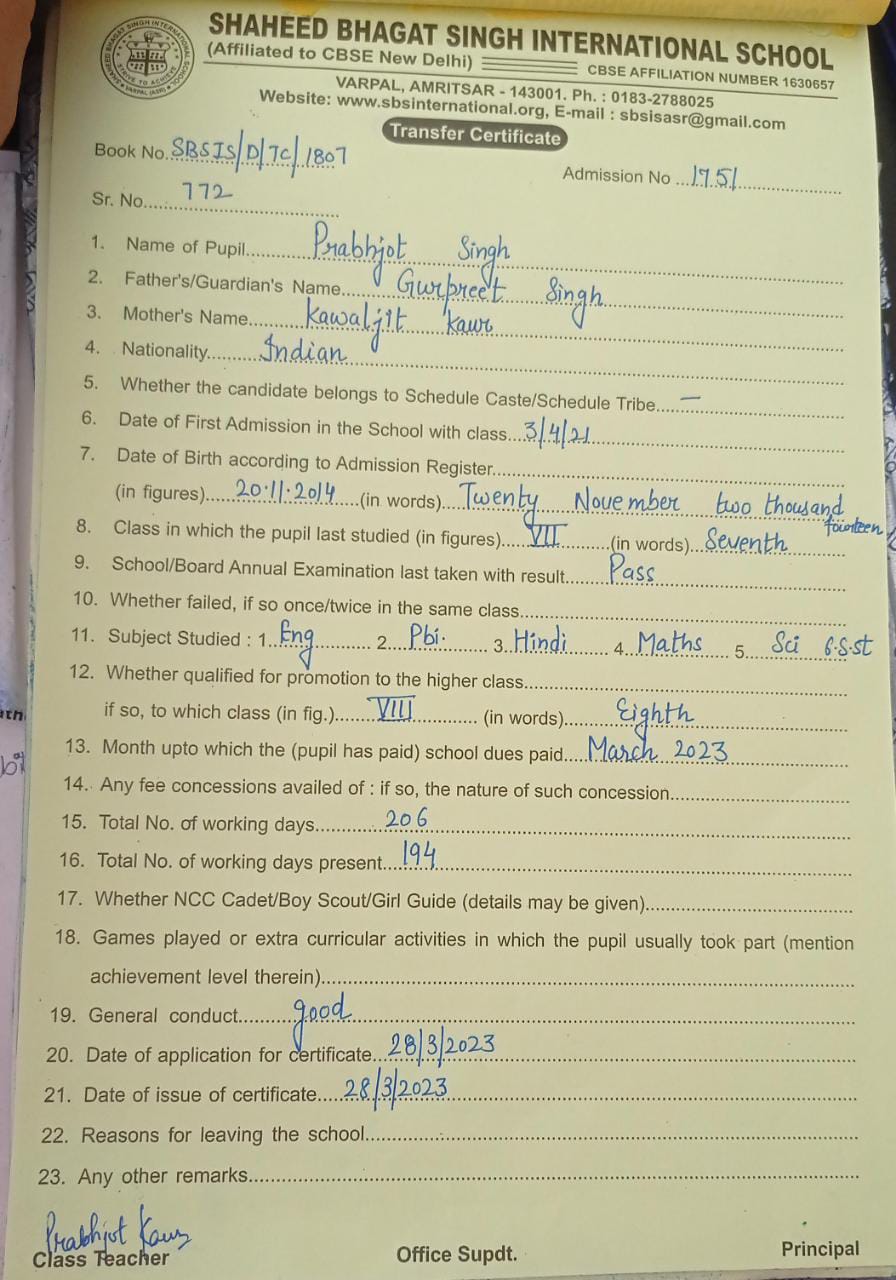 SHAHEED BHAGAT SINGH INTERNATIONAL SCHOOL
(Affiliated to CBSE New Delhi)
CBSE AFFILIATION NUMBER 1630657
VARPAL, AMRITSAR - 143001. Ph. : 0183-2788025
Website: www.sbsinternational.org, E-mail : sbsisasr@gmail.com
Transfer Certificate
Book No. SBSIS/D/TC/1807
Admission No ... 1751
Sr. No..... 772
1. Name of Pupil.......... Prabhjot Singh
2. Father's/Guardian's Name.......... Gurpreet Singh
3. Mother's Name.......... Kawaljit Kaur
4. Nationality.......... Indian
5. Whether the candidate belongs to Schedule Caste/Schedule Tribe..... —
6. Date of First Admission in the School with class... 3/4/21
7. Date of Birth according to Admission Register..........
(in figures)..... 20.11.2014 .....(in words)... Twenty November two thousand fourteen
8. Class in which the pupil last studied (in figures)..... VII ..........(in words)... Seventh
9. School/Board Annual Examination last taken with result....... Pass
10. Whether failed, if so once/twice in the same class..........
11. Subject Studied : 1.. Eng .......... 2.... Pbi. 3.. Hindi ....... 4.. Maths .... 5. Sci 6.S.st
12. Whether qualified for promotion to the higher class..........
if so, to which class (in fig.)..... VIII .......... (in words)..... Eighth
13. Month upto which the (pupil has paid) school dues paid.... March 2023
14. Any fee concessions availed of : if so, the nature of such concession..........
15. Total No. of working days.......... 206
16. Total No. of working days present... 194
17. Whether NCC Cadet/Boy Scout/Girl Guide (details may be given)..........
18. Games played or extra curricular activities in which the pupil usually took part (mention
achievement level therein)..........
19. General conduct.......... good
20. Date of application for certificate... 28/3/2023
21. Date of issue of certificate..... 28/3/2023
22. Reasons for leaving the school..........
23. Any other remarks..........
Prabhjot Kaur
Class Teacher Office Supdt. Principal